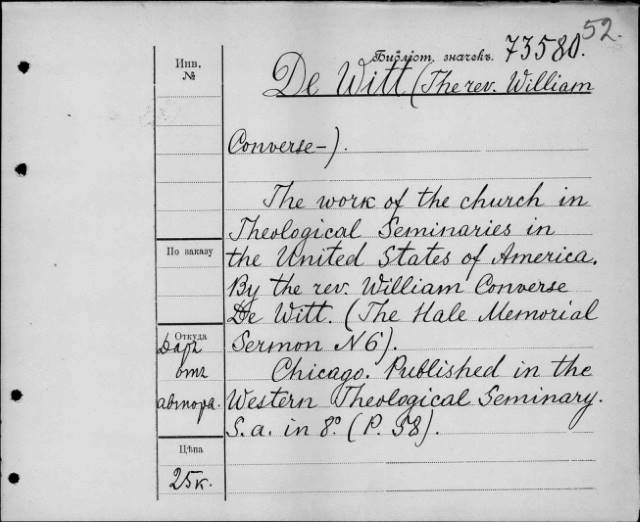 52.
Библіот. значекъ. 73580.
Инв.
№
De Witt (The rev. William
Converse-).
The work of the church in
Theological Seminaries in
the United States of America.
By the rev. William Converse
De Witt. (The Hale Memorial
Sermon N 6).
Chicago. Published in the
Western Theological Seminary.
S. a. in 8º (P. 58).
По заказу
Откуда
Даръ
отъ
автора.
Цѣна
25к.